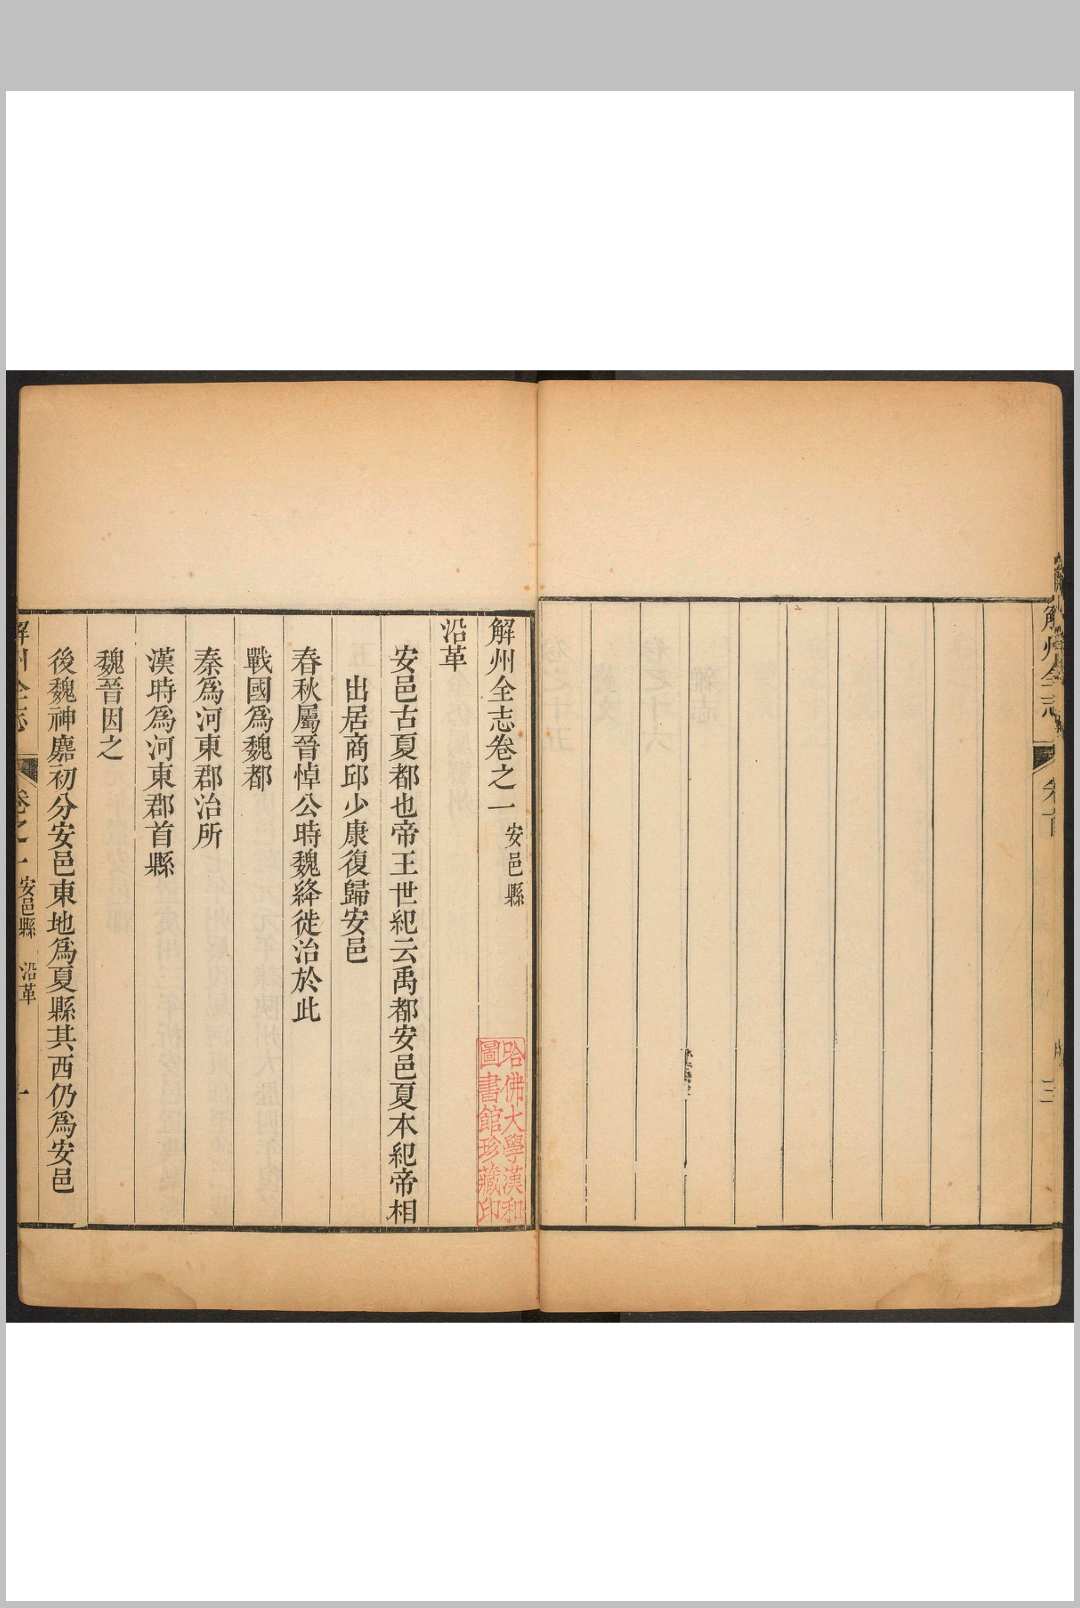 解州全志
卷首
三
解州全志卷之一 安邑縣
沿革
安邑古夏都也帝王世紀云禹都安邑夏本紀帝相
出居商邱少康復歸安邑
春秋屬晉悼公時魏絳徙治於此
戰國爲魏都
秦爲河東郡治所
漢時爲河東郡首縣
魏晉因之
後魏神䴥初分安邑東地爲夏縣其西仍爲安邑
解州全志 卷之一 安邑縣 沿革 一
哈佛大學漢和
圖書館珍藏印